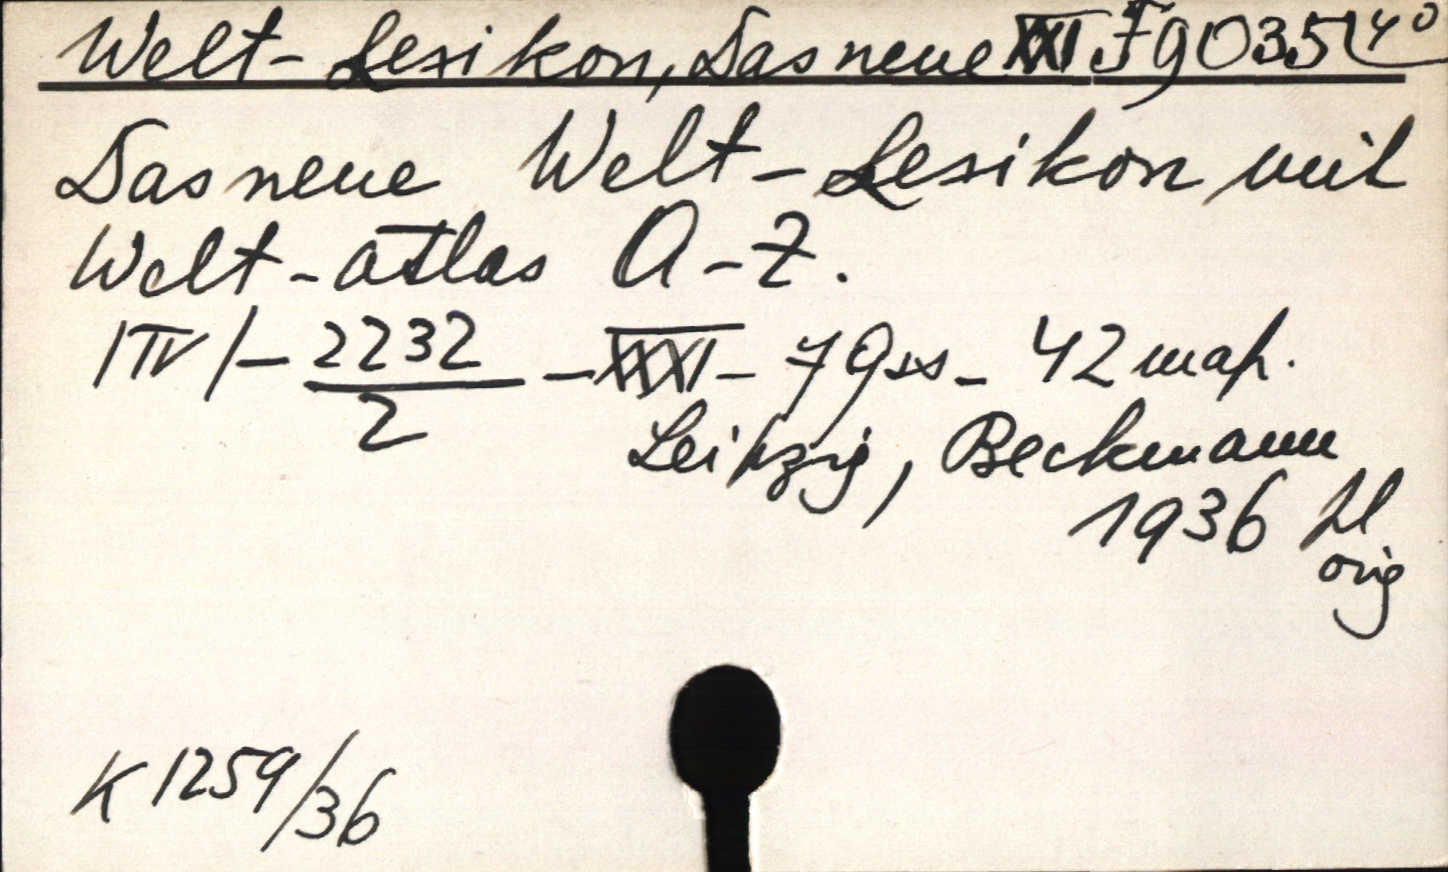 Welt-Lexikon, Das neue XXI F 9035 4°
Das neue Welt-Lexikon mit
Welt-atlas A-Z.
/IV/- 2232/2 - XXXI - 79 ss - 42 map.
Leipzig, Beckmann
1936
orig
K 1259/36